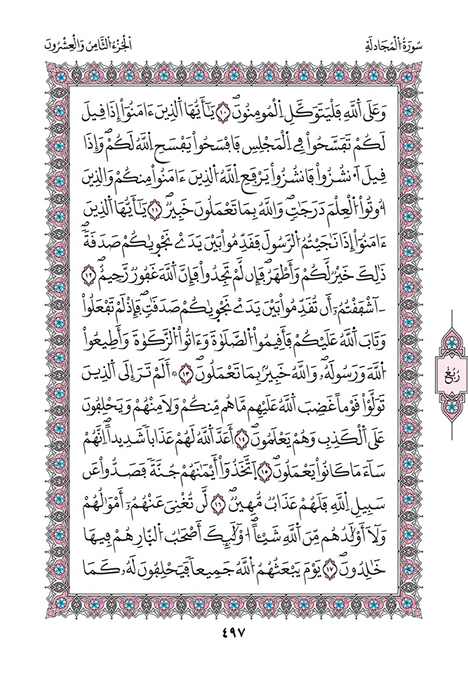 سُورَةُ الْمُجَادلَةِ
الْجُزْءُ الثَّامِنُ وَالْعِشْرُونَ
وَعَلَى اَللَّهِ فَلْيَتَوَكَّلِ اِلْمُومِنُونَ ١٠ يَٰٓأَيُّهَا اَلذِينَ ءَامَنُوٓاْ إِذَا قِيلَ
لَكُمْ تَفَسَّحُواْ فِي اِلْمَجْلِسِ فَافْسَحُواْ يَفْسَحِ اِللَّهُ لَكُمْ وَإِذَا
قِيلَ اَنشُزُواْ فَانشُزُواْ يَرْفَعِ اِللَّهُ اُلذِينَ ءَامَنُواْ مِنكُمْ وَالذِينَ
أُوتُواْ اُلْعِلْمَ دَرَجَٰتٖ وَاللَّهُ بِمَا تَعْمَلُونَ خَبِيرٞ ١١ يَٰٓأَيُّهَا اَلذِينَ
ءَامَنُوٓاْ إِذَا نَٰجَيْتُمُ اُلرَّسُولَ فَقَدِّمُواْ بَيْنَ يَدَےْ نَجْوَيٰكُمْ صَدَقَةٗ
ذَٰلِكَ خَيْرٞ لَّكُمْ وَأَطْهَرُ فَإِن لَّمْ تَجِدُواْ فَإِنَّ اَللَّهَ غَفُورٞ رَّحِيمٌ ١٢
ءَآشْفَقْتُمُۥٓ أَن تُقَدِّمُواْ بَيْنَ يَدَےْ نَجْوَيٰكُمْ صَدَقَٰتٖ فَإِذْ لَمْ تَفْعَلُواْ
وَتَابَ اَللَّهُ عَلَيْكُمْ فَأَقِيمُواْ اُلصَّلَوٰةَ وَءَاتُواْ اُلزَّكَوٰةَ وَأَطِيعُواْ
اُللَّهَ وَرَسُولَهُۥ وَاللَّهُ خَبِيرُۢ بِمَا تَعْمَلُونَ ١٣ ۞ أَلَمْ تَرَ إِلَى اَلذِينَ
تَوَلَّوْاْ قَوْماً غَضِبَ اَللَّهُ عَلَيْهِم مَّا هُم مِّنكُمْ وَلَا مِنْهُمْ وَيَحْلِفُونَ
عَلَى اَلْكَذِبِ وَهُمْ يَعْلَمُونَ ١٤ أَعَدَّ اَللَّهُ لَهُمْ عَذَاباٗ شَدِيداً اِنَّهُمْ
سَآءَ مَا كَانُواْ يَعْمَلُونَ ١٥ اَتَّخَذُوٓاْ أَيْمَٰنَهُمْ جُنَّةٗ فَصَدُّواْ عَن
سَبِيلِ اِللَّهِ فَلَهُمْ عَذَابٞ مُّهِينٞ ١٦ لَّن تُغْنِيَ عَنْهُمُۥٓ أَمْوَٰلُهُمْ
وَلَآ أَوْلَٰدُهُم مِّنَ اَللَّهِ شَيْـٔاً اُوْلَٰٓئِكَ أَصْحَٰبُ اُلنّارِ هُمْ فِيهَا
خَٰلِدُونَ ١٧ يَوْمَ يَبْعَثُهُمُ اُللَّهُ جَمِيعاٗ فَيَحْلِفُونَ لَهُۥ كَمَا
رُبُعُ
٤٩٧